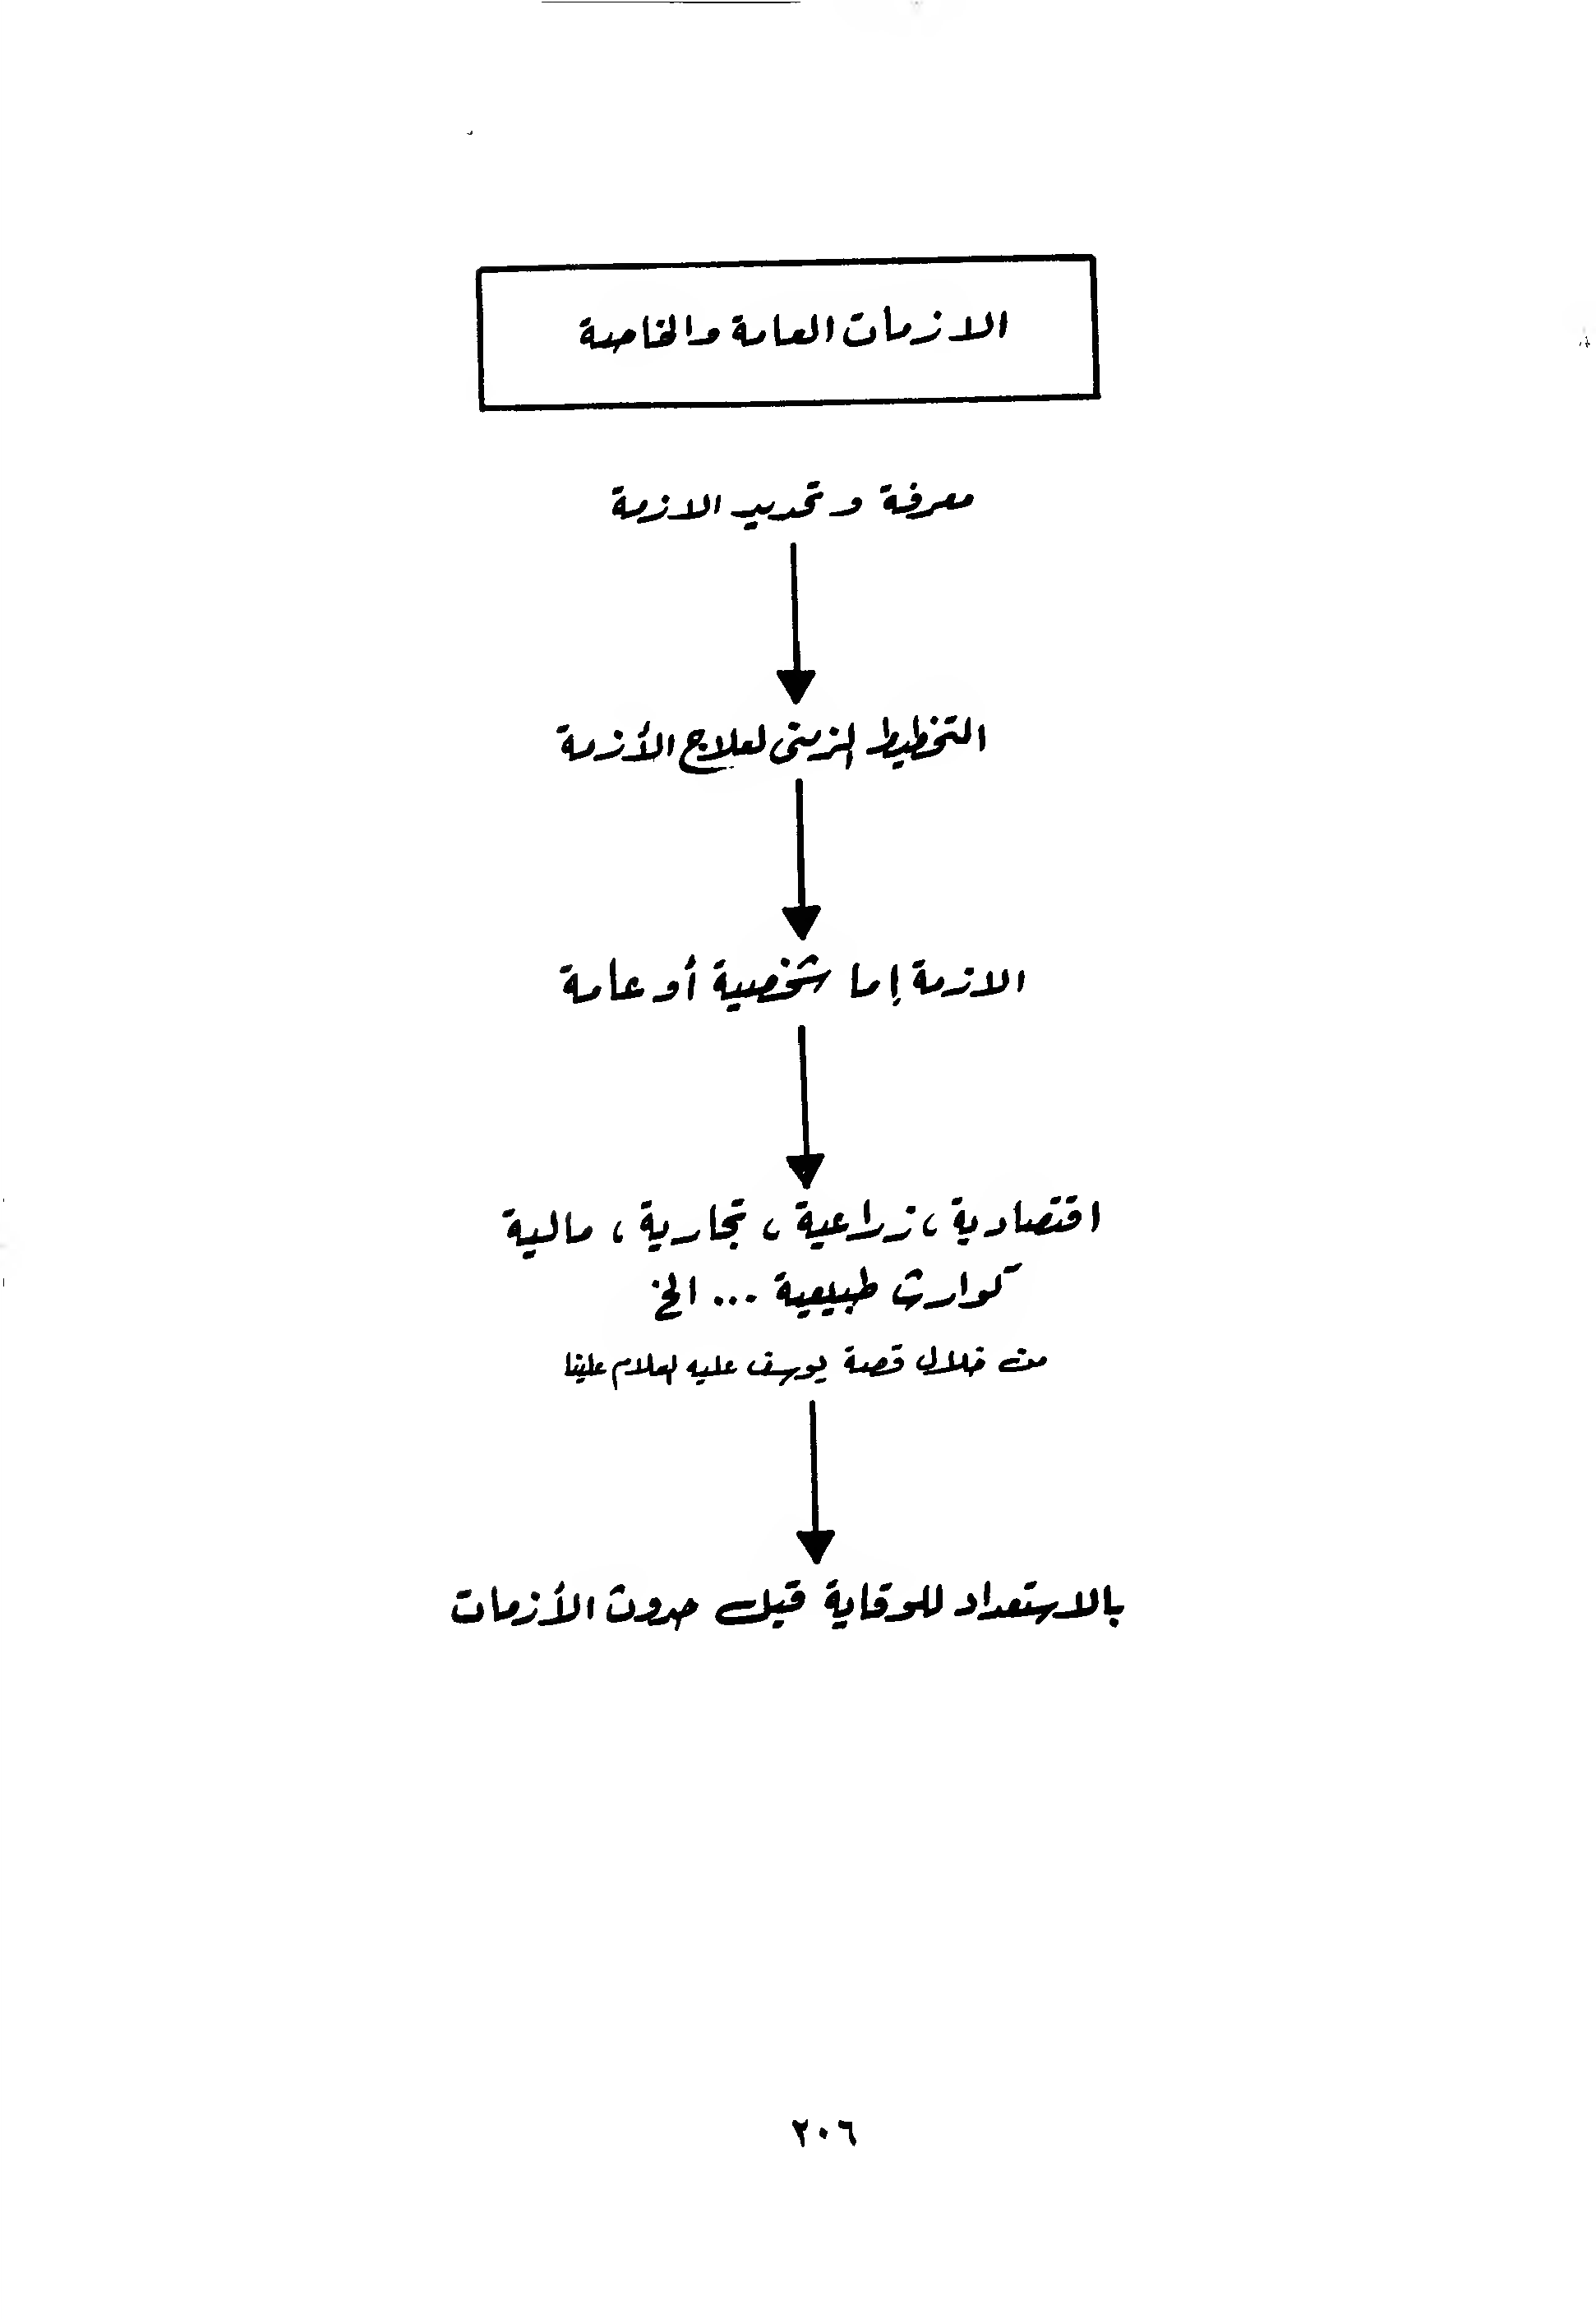 الازمات العامة والخاصة
معرفة وتحديد الازمة
التخطيط الزمنى لعلاج الأزمة
الازمة إما شخصية أو عامة
اقتصادية ، زراعية ، تجارية ، مالية
كوارث طبيعية ... الخ
من خلال قصة يوسف عليه السلام علينا
بالاستعداد للوقاية قبل حدوث الأزمات
٢٠٦